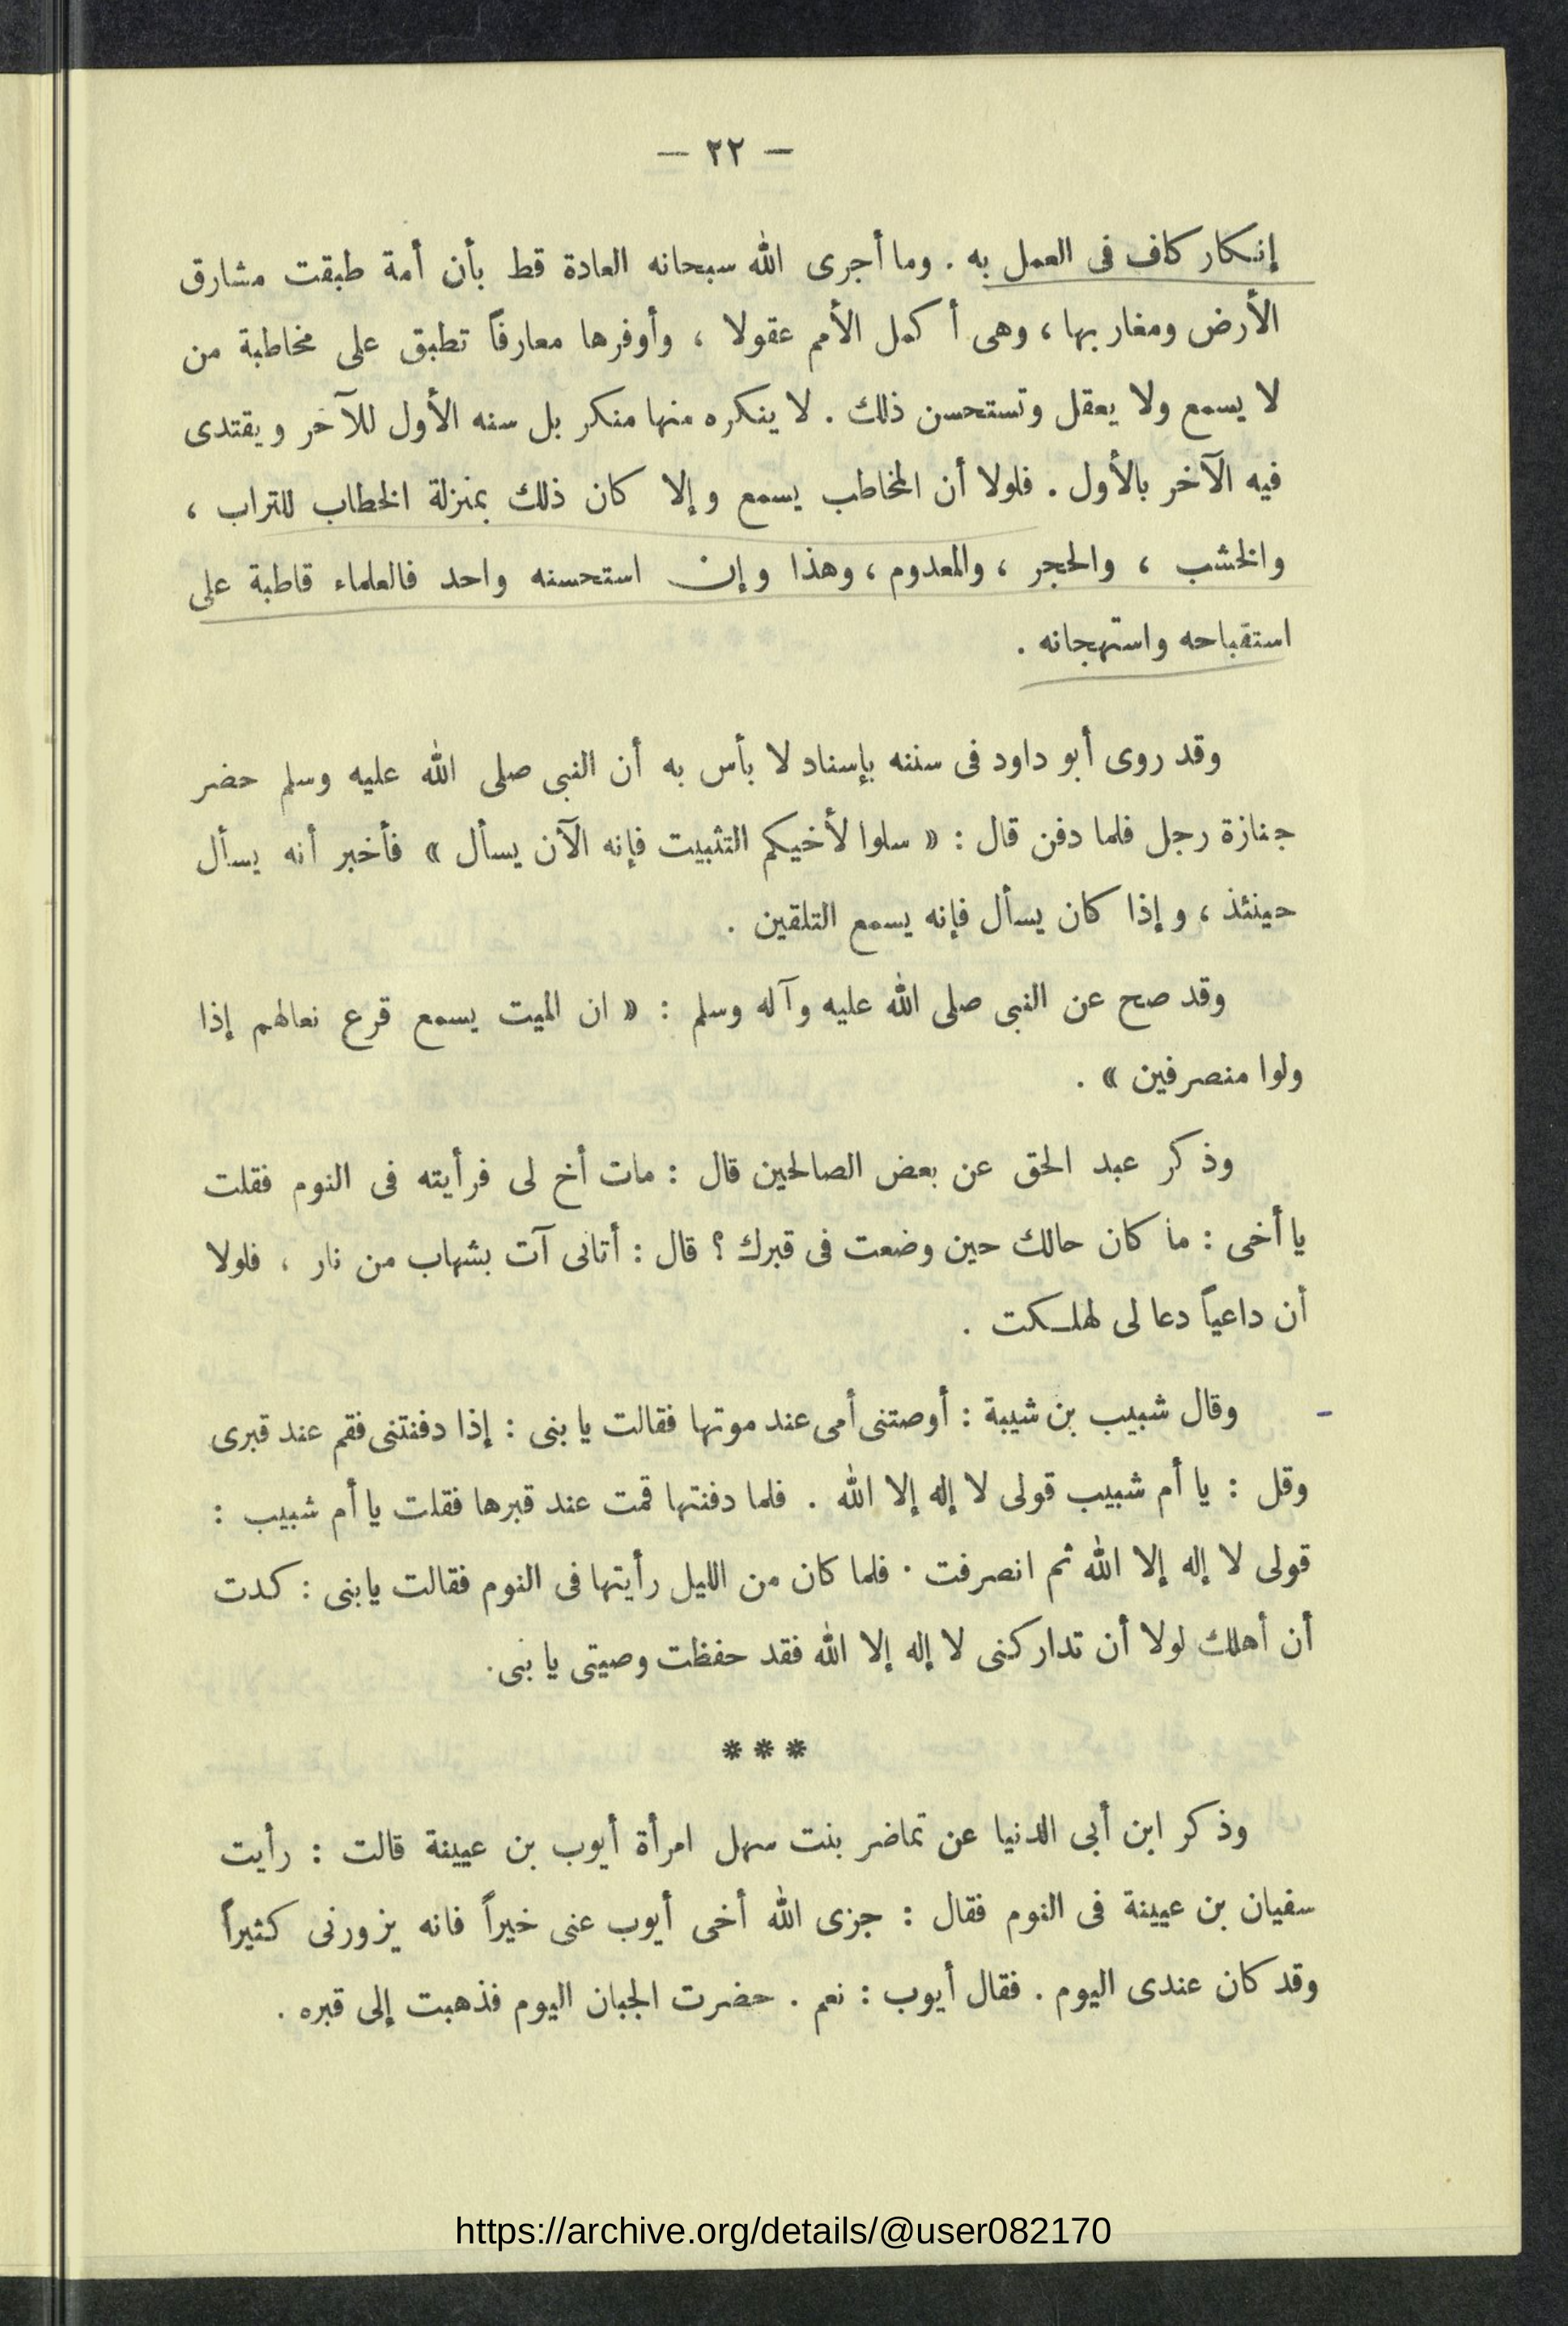 — ٢٢ —
إنكار كاف فى العمل به . وما أجرى الله سبحانه العادة قط بأن أمة طبقت مشارق
الأرض ومغاربها ، وهى أكمل الأمم عقولا ، وأوفرها معارفاً تطبق على مخاطبة من
لا يسمع ولا يعقل وتستحسن ذلك . لا ينكره منها منكر بل سنه الأول للآخر ويقتدى
فيه الآخر بالأول . فلولا أن المخاطب يسمع وإلا كان ذلك بمنزلة الخطاب للتراب ،
والخشب ، والحجر ، والمعدوم ، وهذا وإن استحسنه واحد فالعلماء قاطبة على
استقباحه واستهجانه .
وقد روى أبو داود فى سننه بإسناد لا بأس به أن النبى صلى الله عليه وسلم حضر
جنازة رجل فلما دفن قال : « سلوا لأخيكم التثبيت فإنه الآن يسأل » فأخبر أنه يسأل
حينئذ ، وإذا كان يسأل فإنه يسمع التلقين .
وقد صح عن النبى صلى الله عليه وآله وسلم : « ان الميت يسمع قرع نعالهم إذا
ولوا منصرفين » .
وذكر عبد الحق عن بعض الصالحين قال : مات أخ لى فرأيته فى النوم فقلت
يا أخى : ما كان حالك حين وضعت فى قبرك ؟ قال : أتانى آت بشهاب من نار ، فلولا
أن داعياً دعا لى لهلكت .
وقال شبيب بن شيبة : أوصتنى أمى عند موتها فقالت يا بنى : إذا دفنتنى فقم عند قبرى
وقل : يا أم شبيب قولى لا إله إلا الله . فلما دفنتها قمت عند قبرها فقلت يا أم شبيب :
قولى لا إله إلا الله ثم انصرفت . فلما كان من الليل رأيتها فى النوم فقالت يابنى : كدت
أن أهلك لولا أن تداركنى لا إله إلا الله فقد حفظت وصيتى يا بنى .
***
وذكر ابن أبى الدنيا عن تماضر بنت سهل امرأة أيوب بن عيينة قالت : رأيت
سفيان بن عيينة فى النوم فقال : جزى الله أخى أيوب عنى خيراً فانه يزورنى كثيراً
وقد كان عندى اليوم . فقال أيوب : نعم . حضرت الجبان اليوم فذهبت إلى قبره .
https://archive.org/details/@user082170